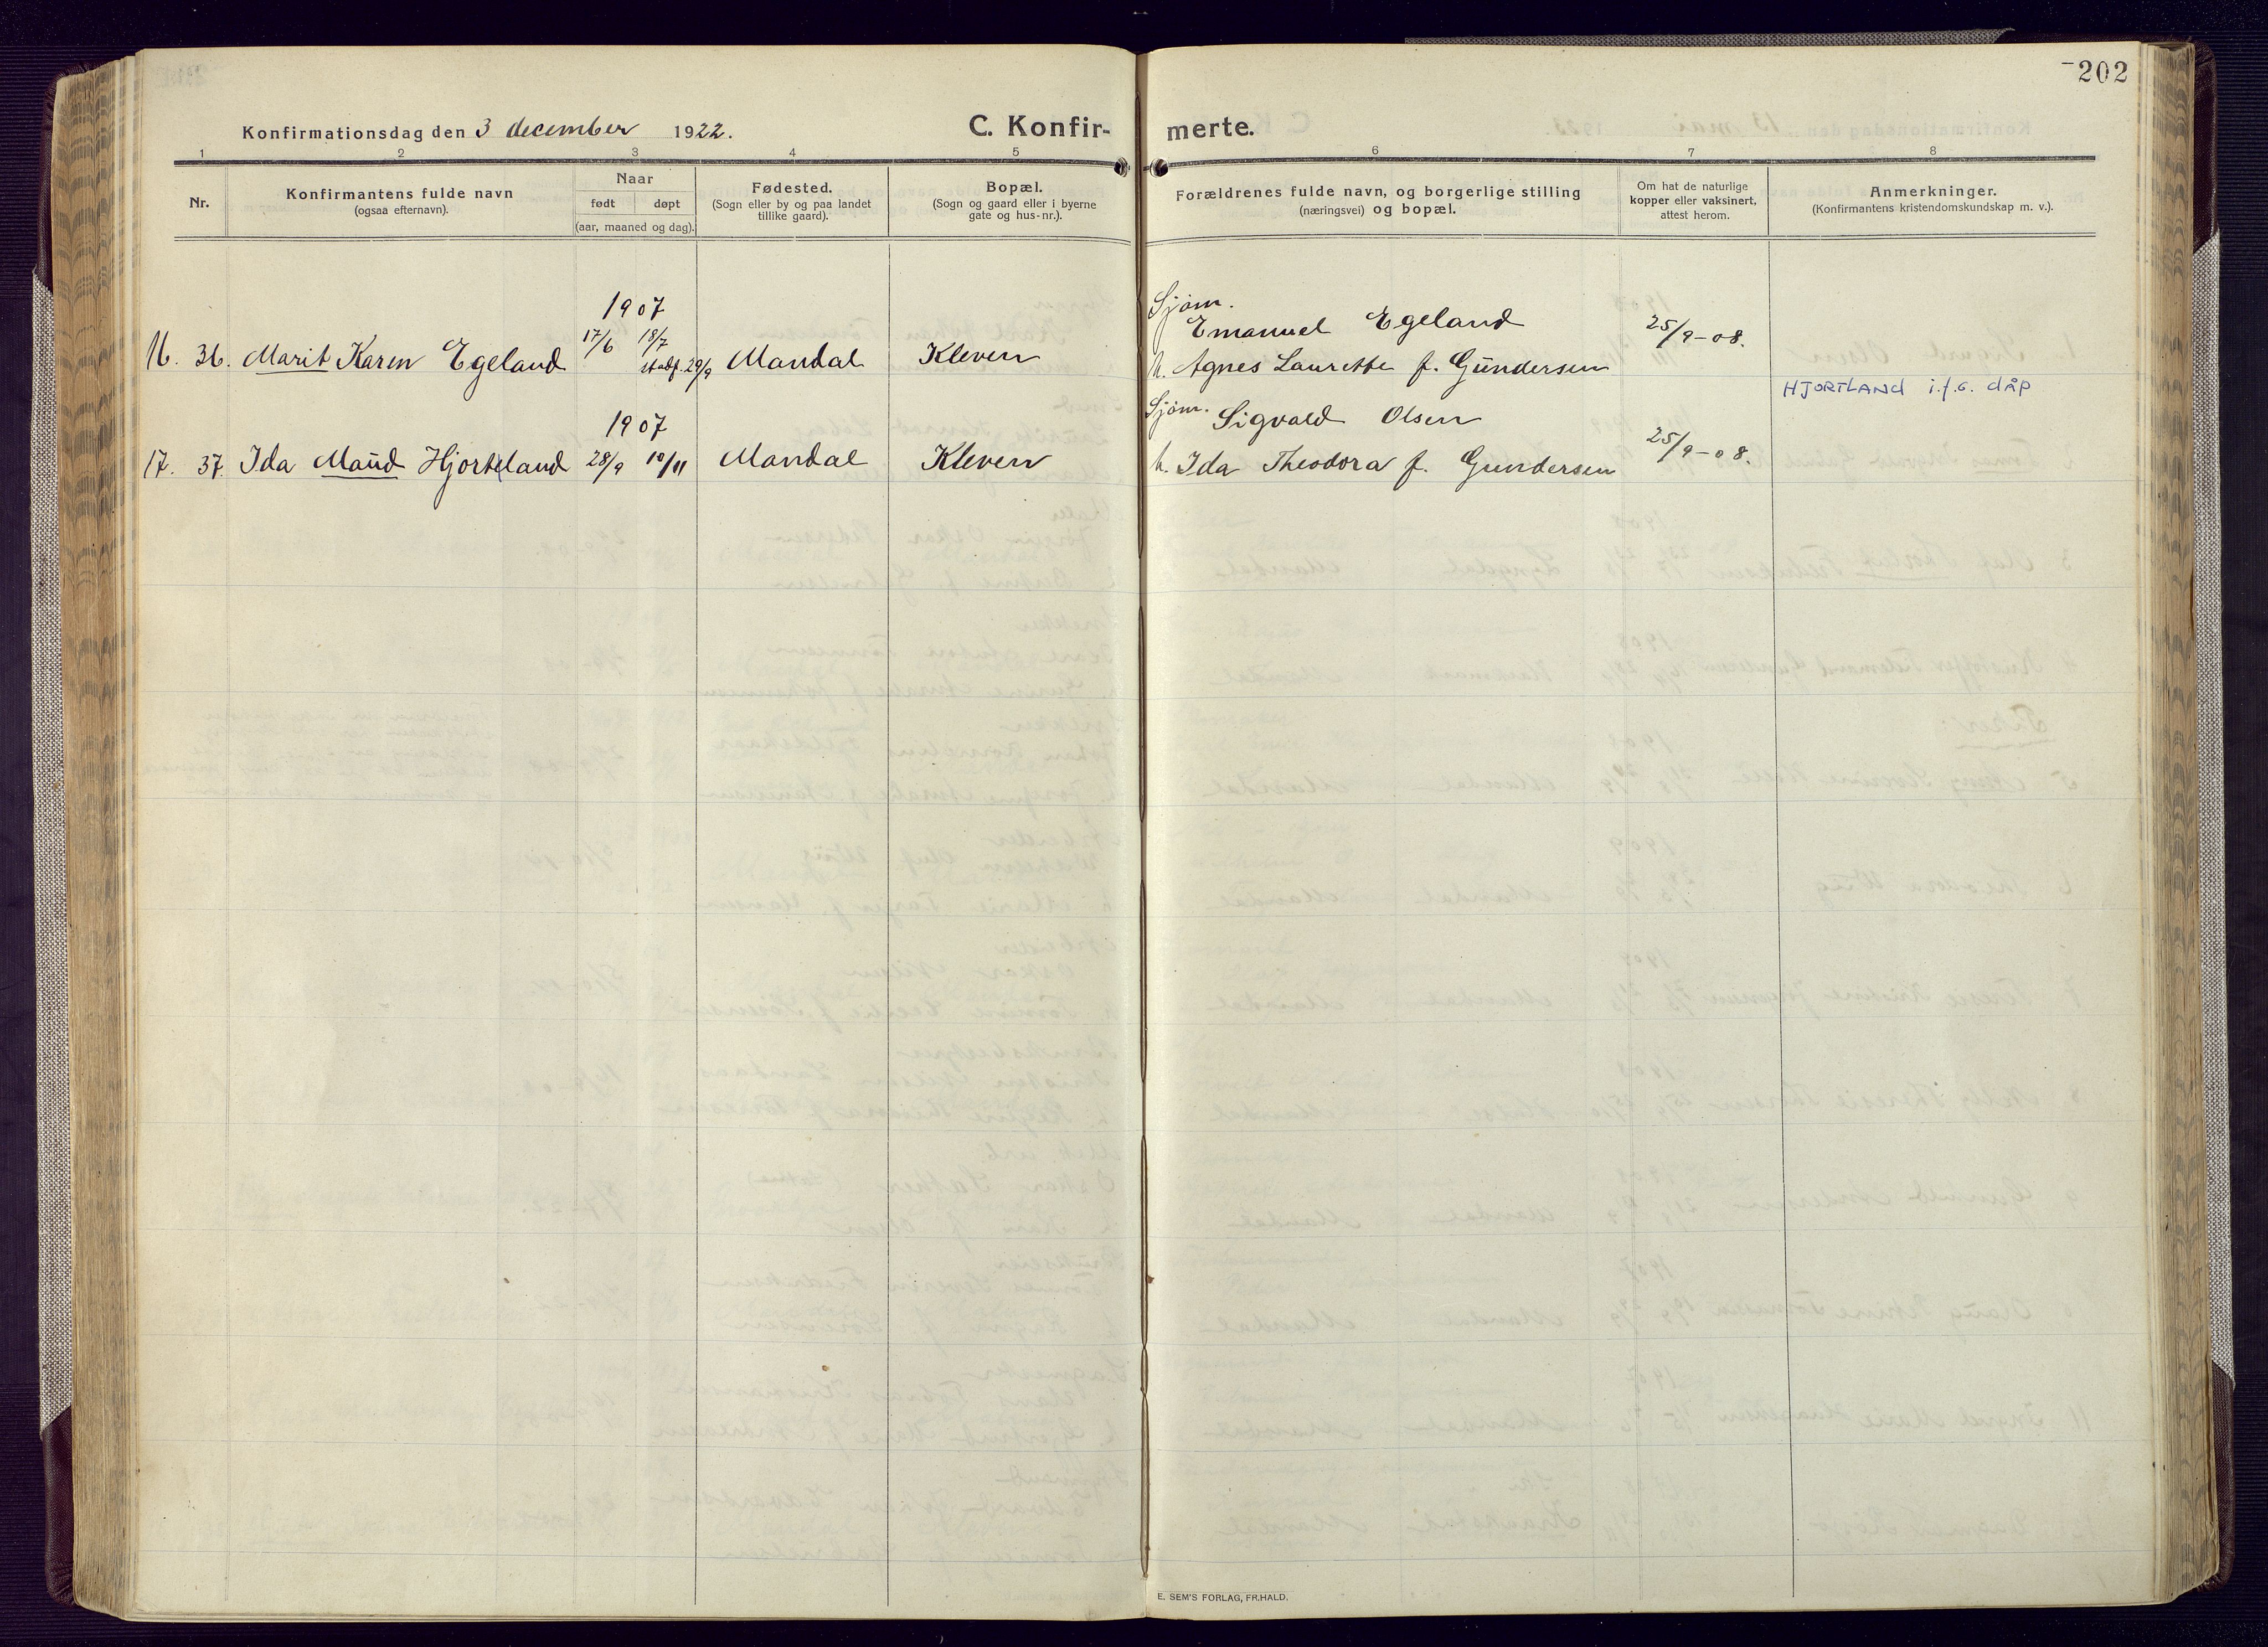 202
Konfirmationsdag den 3 december 1922.
C. Konfir-
merte.
1 2 3 4 5 6 7 8
Nr.
Konfirmantens fulde navn
(ogsaa efternavn).
Naar
født døpt
(aar, maaned og dag).
Fødested.
(Sogn eller by og paa landet
tillike gaard).
Bopæl.
(Sogn og gaard eller i byerne
gate og hus-nr.).
Forældrenes fulde navn, og borgerlige stilling
(næringsvei) og bopæl.
Om hat de naturlige
kopper eller vaksinert,
attest herom.
Anmerkninger.
(Konfirmantens kristendomskundskap m. v.).
1907
Sjøm.
Emanuel Egeland
16. 36. Marit Karen Egeland 17/6 18/7 Mandal Kleven 25/9-08.
stadf. 29/9
h. Agnes Laurette f. Gundersen
HJORTLAND i.f.g. dåp
1907
Sjøm. Sigvald Olsen
17. 37. Ida Maud Hjorteland 28/9 10/11 Mandal Kleven 25/9-08.
h. Ida Theodora f. Gundersen
E. SEM'S FORLAG, FR.HALD.